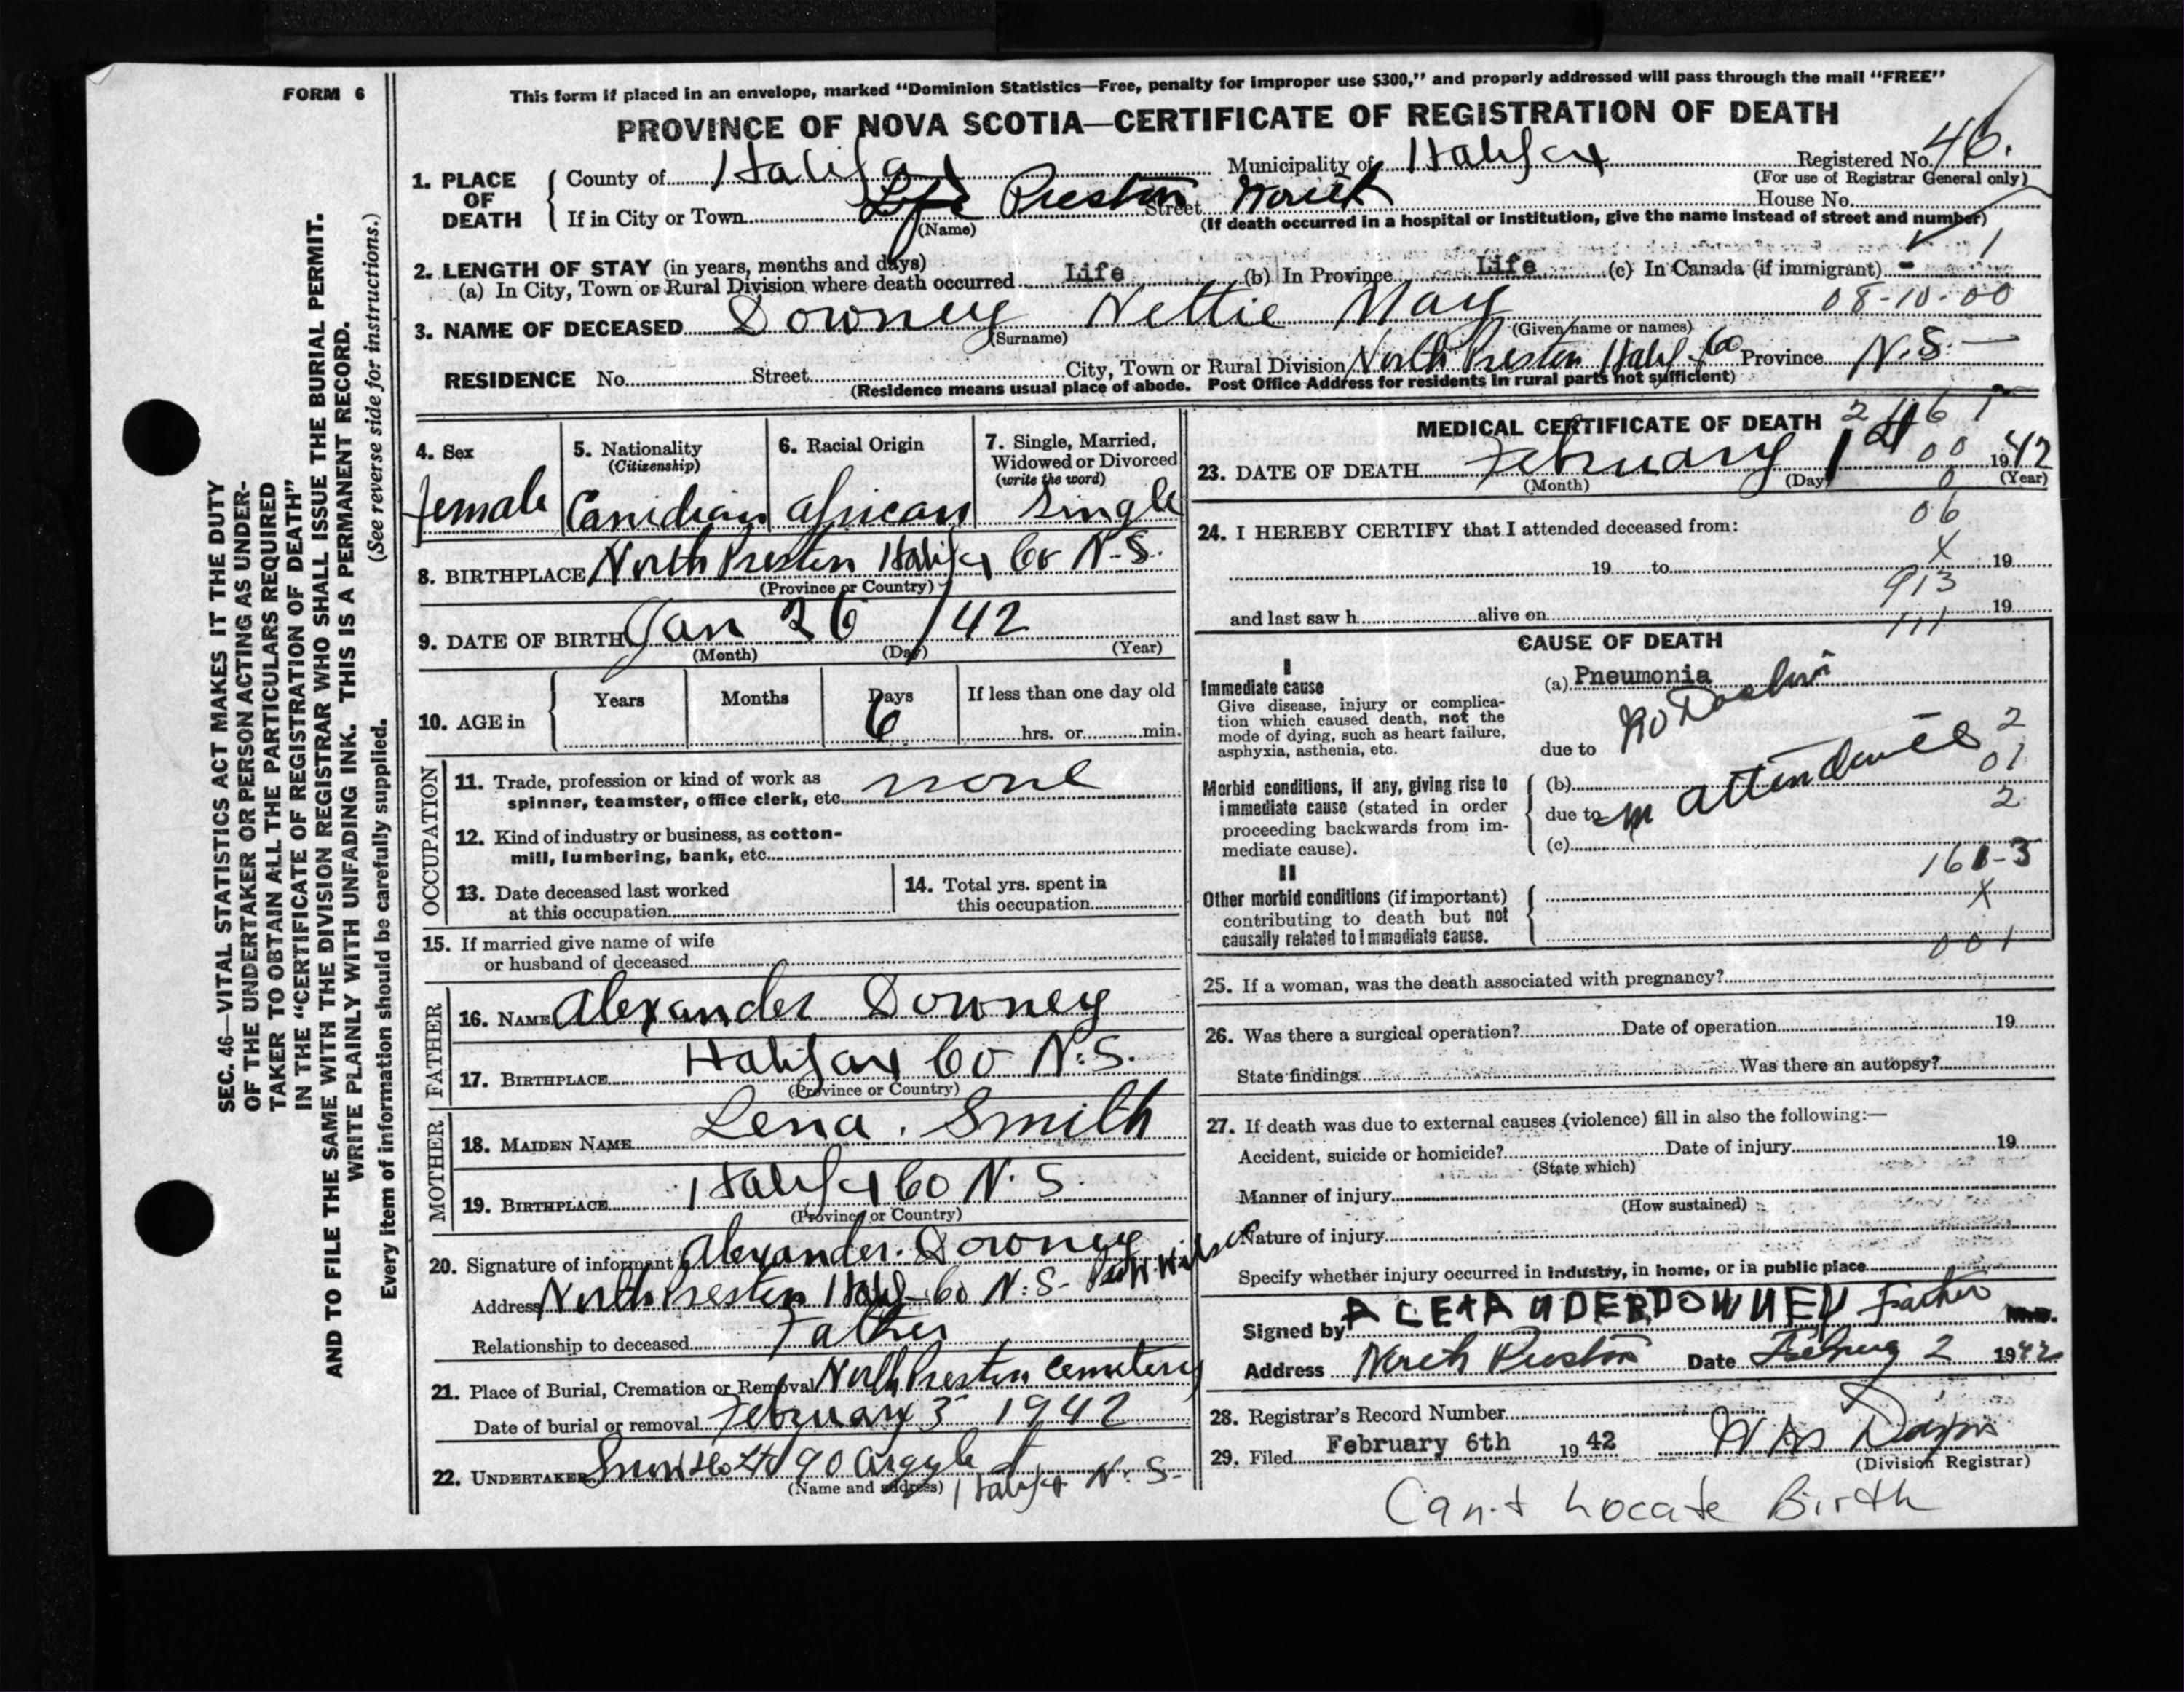 FORM 6
This form if placed in an envelope, marked "Dominion Statistics—Free, penalty for improper use $300," and properly addressed will pass through the mail "FREE"
PROVINCE OF NOVA SCOTIA—CERTIFICATE OF REGISTRATION OF DEATH
SEC. 46—VITAL STATISTICS ACT MAKES IT THE DUTY
OF THE UNDERTAKER OR PERSON ACTING AS UNDER-
TAKER TO OBTAIN ALL THE PARTICULARS REQUIRED
IN THE "CERTIFICATE OF REGISTRATION OF DEATH"
AND TO FILE THE SAME WITH THE DIVISION REGISTRAR WHO SHALL ISSUE THE BURIAL PERMIT.
WRITE PLAINLY WITH UNFADING INK. THIS IS A PERMANENT RECORD.
(See reverse side for instructions.)
Every item of information should be carefully supplied.
1. PLACE OF DEATH
County of Halifax Municipality of Halifax Registered No. 46.
(For use of Registrar General only)
If in City or Town Life Preston Street North House No.
(Name) (If death occurred in a hospital or institution, give the name instead of street and number)
1
2. LENGTH OF STAY (in years, months and days)
(a) In City, Town or Rural Division where death occurred Life (b) In Province Life (c) In Canada (if immigrant) -
08-10-00
3. NAME OF DECEASED Downey Nettie May
(Surname) (Given name or names)
RESIDENCE No. Street City, Town or Rural Division North Preston Halif Co Province N.S.
(Residence means usual place of abode. Post Office Address for residents in rural parts not sufficient)
4. Sex
female
5. Nationality
(Citizenship)
Canidian
6. Racial Origin
African
7. Single, Married,
Widowed or Divorced
(write the word)
Single
8. BIRTHPLACE North Preston Halifax Co N.S.
(Province or Country)
9. DATE OF BIRTH Jan 26 / 42
(Month) (Day) (Year)
10. AGE in
Years Months Days If less than one day old
6 hrs. or min.
OCCUPATION
11. Trade, profession or kind of work as
spinner, teamster, office clerk, etc. none
12. Kind of industry or business, as cotton-
mill, lumbering, bank, etc.
13. Date deceased last worked
at this occupation
14. Total yrs. spent in
this occupation
15. If married give name of wife
or husband of deceased
FATHER
16. NAME Alexander Downey
17. BIRTHPLACE Halifax Co N.S.
(Province or Country)
MOTHER
18. MAIDEN NAME Lena. Smith
19. BIRTHPLACE Halifax Co N.S
(Province or Country)
20. Signature of informant Alexander. Downey
Address North Preston Halif-Co N.S-
Relationship to deceased Father
21. Place of Burial, Cremation or Removal North Preston Cemetery
Date of burial or removal February 3 1942
22. UNDERTAKER Snow Co Ltd 90 Argyle St
(Name and address) Halifax N.S.
MEDICAL CERTIFICATE OF DEATH
23. DATE OF DEATH February 1st 00 1942
(Month) (Day) (Year)
0
06
24. I HEREBY CERTIFY that I attended deceased from:
X
19 to 19
913
and last saw h alive on 19
111
CAUSE OF DEATH
I
Immediate cause
Give disease, injury or complica-
tion which caused death, not the
mode of dying, such as heart failure,
asphyxia, asthenia, etc.
(a) Pneumonia
due to No Doctor
2
01
2
Morbid conditions, if any, giving rise to
immediate cause (stated in order
proceeding backwards from im-
mediate cause).
(b)
due to in attendance
(c)
161-3
II
Other morbid conditions (if important)
contributing to death but not
causally related to immediate cause.
X
001
25. If a woman, was the death associated with pregnancy?
26. Was there a surgical operation? Date of operation 19
State findings Was there an autopsy?
27. If death was due to external causes (violence) fill in also the following:—
Accident, suicide or homicide? Date of injury 19
(State which)
Manner of injury
(How sustained)
Nature of injury
Specify whether injury occurred in industry, in home, or in public place
Signed by ALEXANDERDOWNEY Father M.D.
Address North Preston Date 2 1942
28. Registrar's Record Number
29. Filed February 6th 1942
(Division Registrar)
Can't Locate Birth